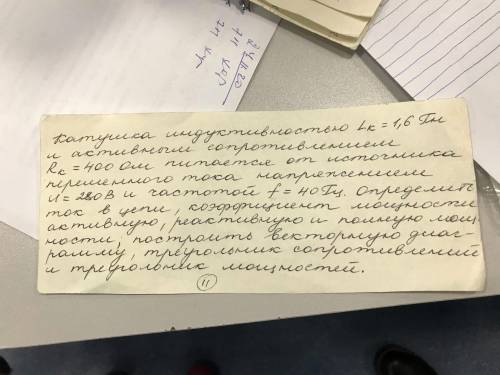 24 П 20
74 КЦР
24 КЦ
Катушка индуктивностью Lк = 1,6 Гн
и активным сопротивлением
Rк = 400 Ом питается от источника
переменного тока напряжением
U = 220 В и частотой f = 40 Гц. Определить
ток в цепи, коэффициент мощности,
активную, реактивную и полную мощ-
ности, построить векторную диаг-
рамму, треугольник сопротивлений
и треугольник мощностей.
11